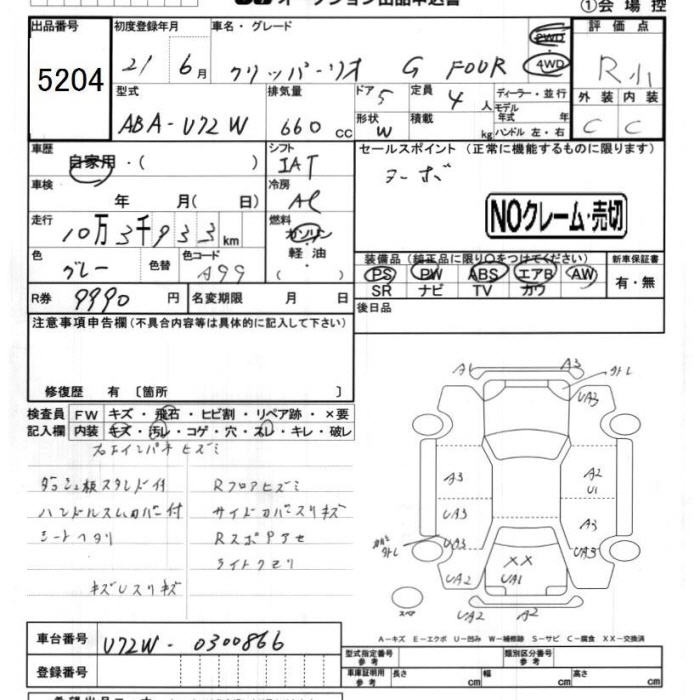 オークション出品申込書 ①会場控
出品番号 5204
初度登録年月 21 6月
車名・グレード クリッパーリオ G FOUR 2WD 4WD
評価点 R小
型式 ABA-U72W
排気量 660 CC
ドア 5
形状 W
定員 4人
積載 kg
ディーラー・並行
モデル年式 年
ハンドル 左・右
外装 C 内装 C
車歴 自家用・( )
シフト IAT
セールスポイント (正常に機能するものに限ります)
ターボ
NOクレーム・売切
車検 年 月( 日)
冷房 AC
走行 10万3千933km
燃料 ガソリン 軽油 ( )
色 グレー 色替 色コード A99
装備品 (純正品に限り○をつけてください)
PS PW ABS エアB AW
SR ナビ TV カワ
新車保証書 有・無
R券 9990円 名変期限 月 日
後日品
注意事項申告欄(不具合内容等は具体的に記入して下さい)
修復歴 有 〔箇所 〕
検査員記入欄
FW キズ・飛石・ヒビ割・リペア跡・×要
内装 キズ・汚レ・コゲ・穴・スレ・キレ・破レ
右Fインパネヒズミ
ダッシュ板スタンド付 Rフロアヒズミ
ハンドルスレカバー付 サイドカバースリキズ
シートヘタリ RスポアセE
ライトクモリ
キズUスリキズ
A1 A3
UA3
A3 A2
U1
UA3 A3
UA3
UA2 XX UA1 UA3
スペア UA2 A2 UA2
A-キズ E-エクボ U-凹み W-補修跡 S-サビ C-腐食 XX-交換済
車台番号 U72W-0300866
登録番号
型式指定番号 参考 類別区分番号 参考
車庫証明用 参考 長さ cm 幅 cm 高さ cm